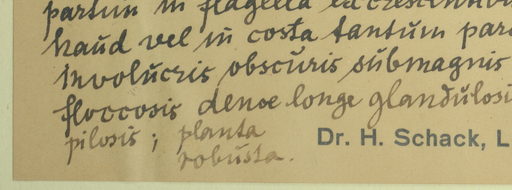 partim in flagella
haud vel in costa tantum
involucris obscuris submagnis
floccosis dense longe glandulosi
pilosis; planta
robusta.
Dr. H. Schack, L